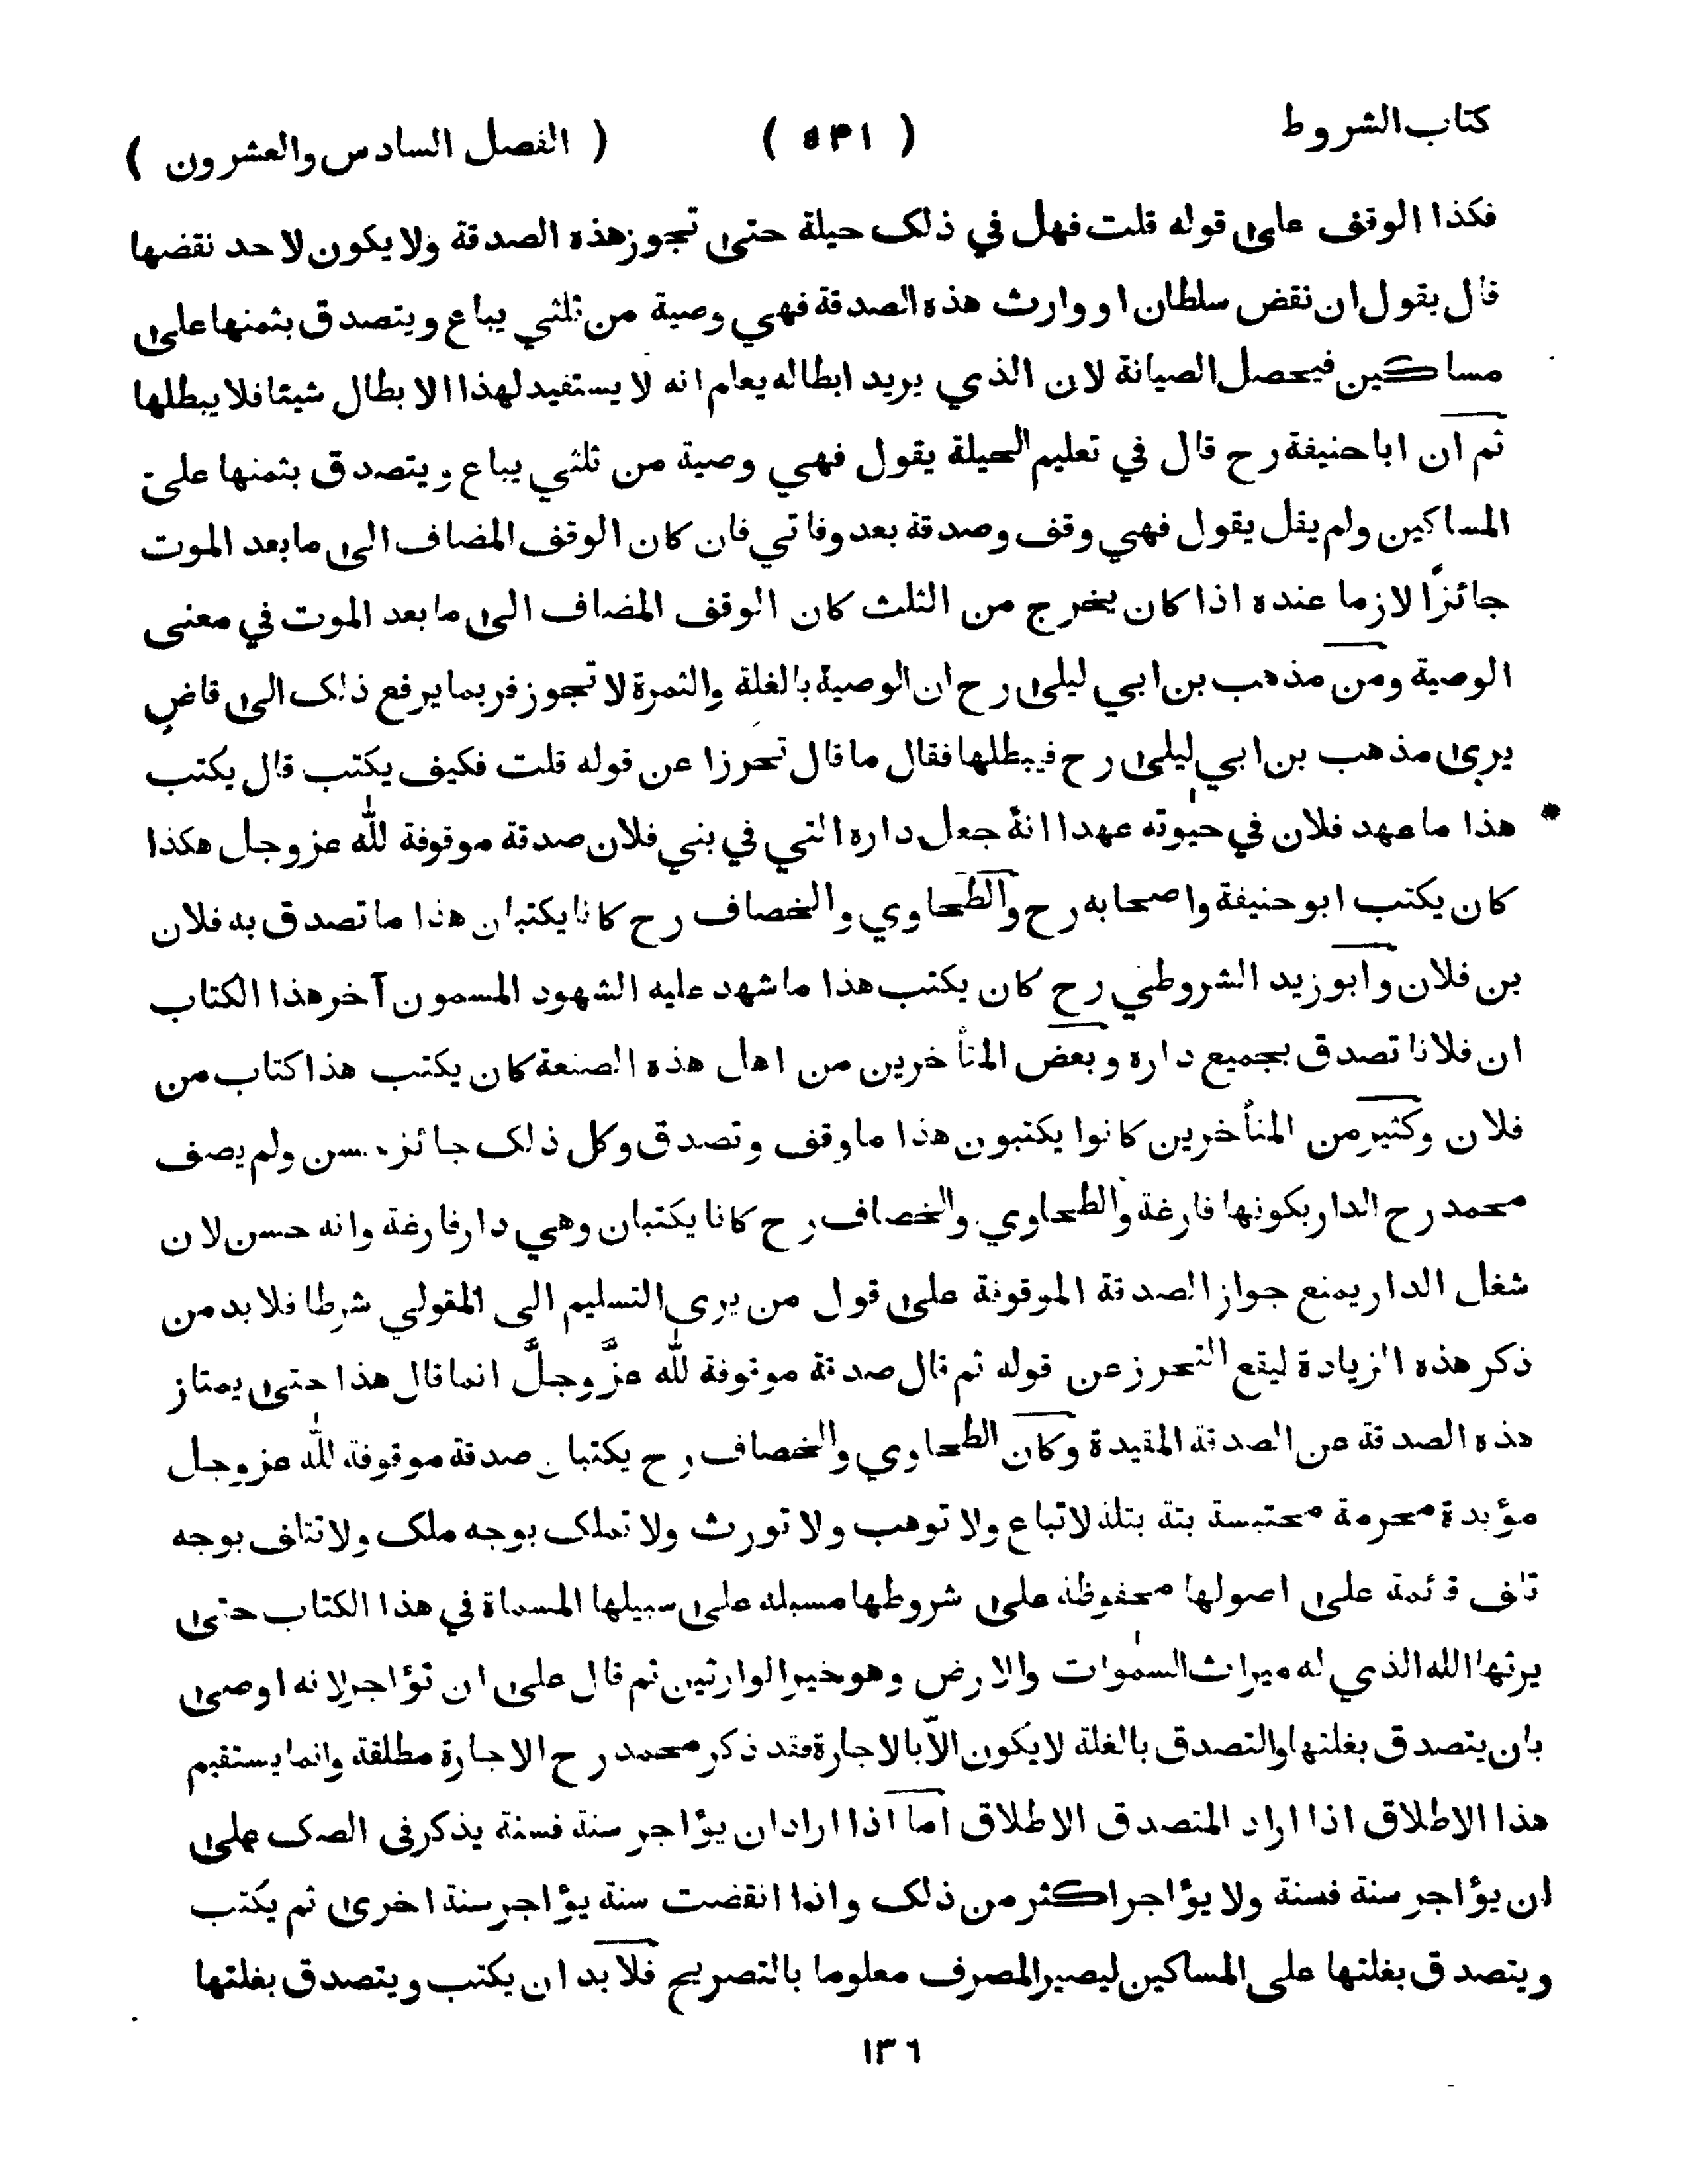 كتاب الشروط ( ٥٣١ ) ( الفصل السادس والعشرون )
فكذا الوقف على قوله قلت فهل في ذلك حيلة حتى تجوز هذه الصدقة ولا يكون لاحد نقضها
قال يقول ان نقض سلطان او وارث هذه الصدقة فهي وصية من ثلثي يباع ويتصدق بثمنها على
مساكين فيحصل الصيانة لان الذي يريد ابطاله يعلم انه لا يستفيد لهذا الابطال شيئا فلا يبطلها
ثم ان ابا حنيفة رح قال في تعليم الحيلة يقول فهي وصية من ثلثي يباع ويتصدق بثمنها على
المساكين ولم يقل يقول فهي وقف وصدقة بعد وفاتي فان كان الوقف المضاف الى ما بعد الموت
جائزًا لازما عنده اذا كان يخرج من الثلث كان الوقف المضاف الى ما بعد الموت في معنى
الوصية ومن مذهب بن ابي ليلى رح ان الوصية بالغلة والثمرة لا تجوز فربما يرفع ذلك الى قاضٍ
يرى مذهب بن ابي ليلى رح فيبطلها فقال ما قال تحرزا عن قوله قلت فكيف يكتب قال يكتب
* هذا ما عهد فلان في حيوته عهدا انهُ جعل داره التي في بني فلان صدقة موقوفة لله عز وجل هكذا
كان يكتب ابو حنيفة واصحابه رح والطحاوي والخصاف رح كانا يكتبان هذا ما تصدق به فلان
بن فلان وابو زيد الشروطي رح كان يكتب هذا ما شهد عليه الشهود المسمون آخر هذا الكتاب
ان فلانا تصدق بجميع داره وبعض المتأخرين من اهل هذه الصنعة كان يكتب هذا كتاب من
فلان وكثير من المتأخرين كانوا يكتبون هذا ما وقف وتصدق وكل ذلك جائز حسن ولم يصف
محمد رح الدار بكونها فارغة والطحاوي والخصاف رح كانا يكتبان وهي دار فارغة وانه حسن لان
شغل الدار يمنع جواز الصدقة الموقوفة على قول من يرى التسليم الى المتولي شرطا فلا بد من
ذكر هذه الزيادة ليقع التحرز عن قوله ثم قال صدقة موقوفة لله عزَّ وجلَّ انما قال هذا حتى يمتاز
هذه الصدقة عن الصدقة المقيدة وكان الطحاوي والخصاف رح يكتبان صدقة موقوفة لله عز وجل
مؤبدة محرمة محتبسة بتة بتلة لا تباع ولا توهب ولا تورث ولا تملك بوجه ملك ولا تتلف بوجه
تلف قائمة على اصولها محفوظة على شروطها مسبلة على سبيلها المسماة في هذا الكتاب حتى
يرثها الله الذي له ميراث السموات والارض وهو خير الوارثين ثم قال على ان تؤاجر لانه اوصى
بان يتصدق بغلتها والتصدق بالغلة لا يكون الّا بالاجارة فقد ذكر محمد رح الاجارة مطلقة وانما يستقيم
هذا الاطلاق اذا اراد المتصدق الاطلاق اما اذا اراد ان يؤاجر سنة فسنة يذكر فى الصك على
ان يؤاجر سنة فسنة ولا يؤاجر اكثر من ذلك واذا انقضت سنة يؤاجر سنة اخرى ثم يكتب
ويتصدق بغلتها على المساكين ليصير المصرف معلوما بالتصريح فلا بد ان يكتب ويتصدق بغلتها
١٣٦